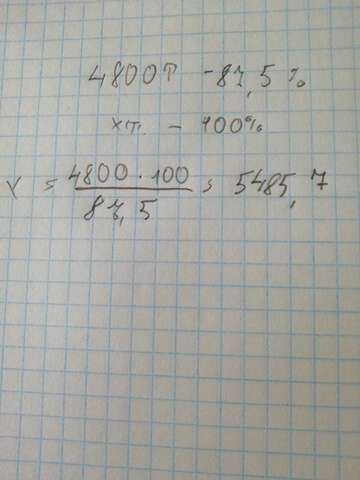 4800т - 87,5%
хт. - 100%
x = 4800 · 100 / 87,5 = 5485,7